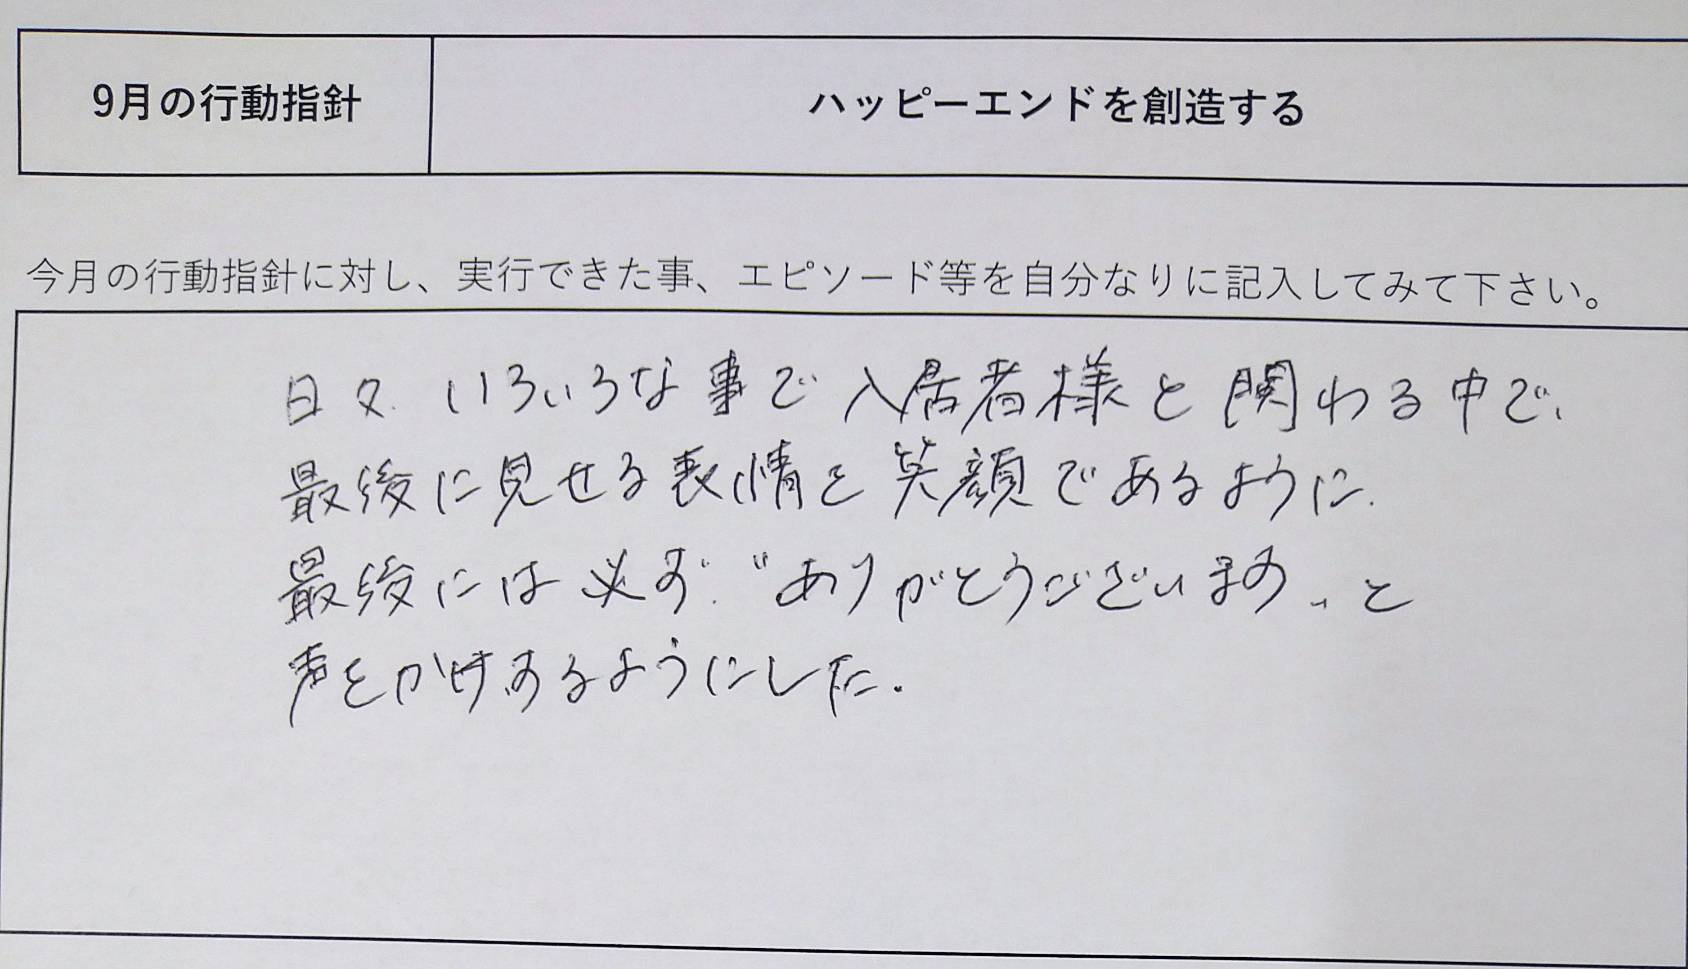 9月の行動指針
ハッピーエンドを創造する
今月の行動指針に対し、実行できた事、エピソード等を自分なりに記入してみて下さい。
日々、いろいろな事で入居者様と関わる中で、
最後に見せる表情を笑顔であるように、
最後には必ず、“ありがとうございます„と
声をかけするようにした。